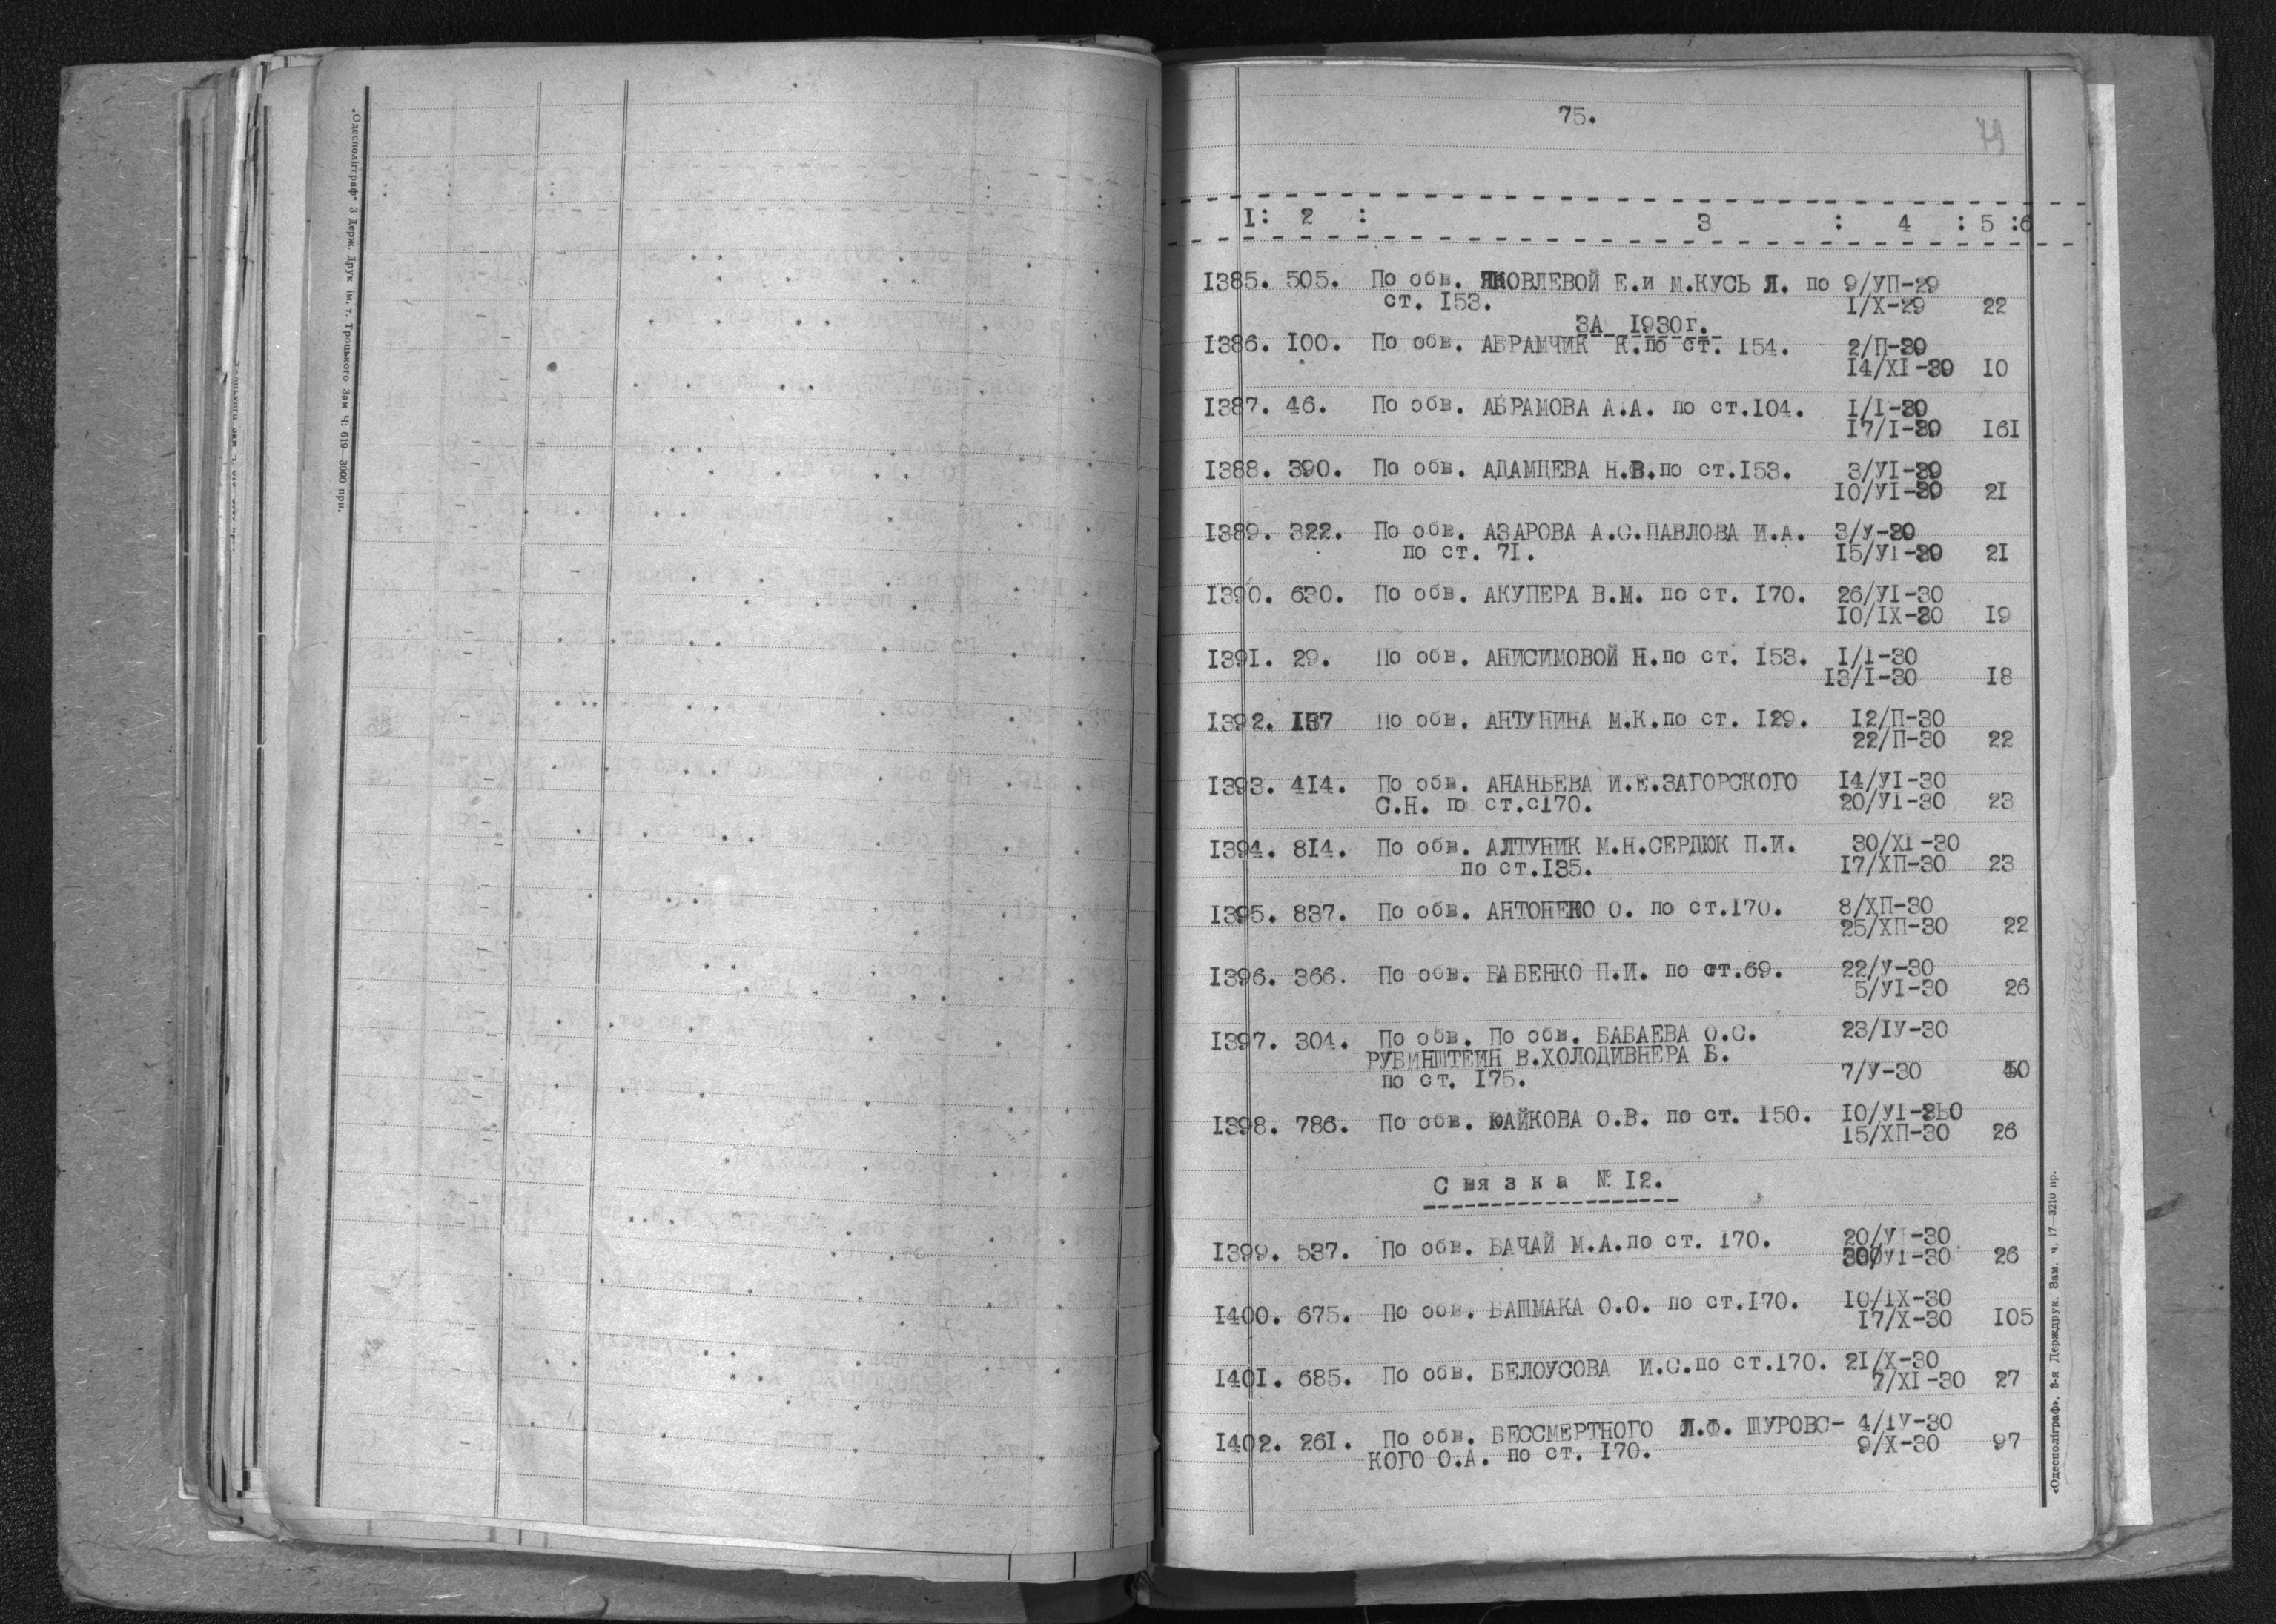 „Одесполіграф" 3 Держ. Друк ім. т. Троцького Зам Ч: 619—3000 прп.
75.
79
1: 2 : 3 : 4 : 5 :6
I385. 505. По обв. ЯКОВЛЕВОЙ Е.и М.КУСЬ Л. по 9/УП-29
ст. I53. I/X-29 22
ЗА I930г.
I386. I00. По обв. АБРАМЧИК К.по ст. I54. 2/П-30
I4/XI-30 I0
I387. 46. По обв. АБРАМОВА А.А. по ст.I04. I/I-30
I7/I-30 I6I
I388. 390. По обв. АДАМЦЕВА Н.В.по ст.I53. 3/УI-30
I0/УI-30 2I
I389. 322. По обв. АЗАРОВА А.С.ПАВЛОВА И.А. 3/У-30
по ст. 7I. I5/УI-30 2I
I390. 630. По обв. АКУПЕРА В.М. по ст. I70. 26/УI-30
I0/IX-30 I9
I39I. 29. По обв. АНИСИМОВОЙ Н.по ст. I53. I/I-30
I3/I-30 I8
I392. I37 По обв. АНТУНИНА М.К.по ст. I29. I2/П-30
22/П-30 22
I393. 4I4. По обв. АНАНЬЕВА И.Е.ЗАГОРСКОГО I4/УI-30
С.Н. по ст.сI70. 20/УI-30 23
I394. 8I4. По обв. АЛТУНИК М.Н.СЕРДЮК П.И. 30/XI-30
по ст.I35. I7/ХП-30 23
I395. 837. По обв. АНТОНЕНКО О. по ст.I70. 8/ХП-30
25/ХП-30 22
I396. 366. По обв. БАБЕНКО П.И. по ст.69. 22/У-30
5/УI-30 26
I397. 304. По обв. По обв. БАБАЕВА О.С. 23/IУ-30
РУБИНШТЕИН В.ХОЛОДИВНЕРА Б.
по ст. I75. 7/У-30 40
I398. 786. По обв. ЮАЙКОВА О.В. по ст. I50. I0/УI-3Ь0
I5/ХП-30 26
С в я з к а № I2.
I399. 537. По обв. БАЧАЙ М.А.по ст. I70. 20/УI-30
300/УI-30 26
I400. 675. По обв. БАШМАКА О.О. по ст.I70. I0/IX-30
I7/X-30 I05
I40I. 685. По обв. БЕЛОУСОВА И.С.по ст.I70. 2I/X-30
7/XI-30 27
I402. 26I. По обв. БЕССМЕРТНОГО Л.Ф. ШУРОВС- 4/IУ-30
КОГО О.А. по ст. I70. 9/X-30 97
«Одесполіграф», 3-я Держдрук. Зам. ч. 17—3210 пр.